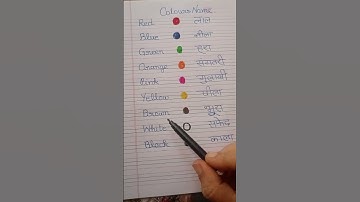 Colours Name
Red लाल
Blue नीला
Green हरा
Orange संतरी
Pink गुलाबी
Yellow पीला
Brown भूरा
White सफेद
Black काला